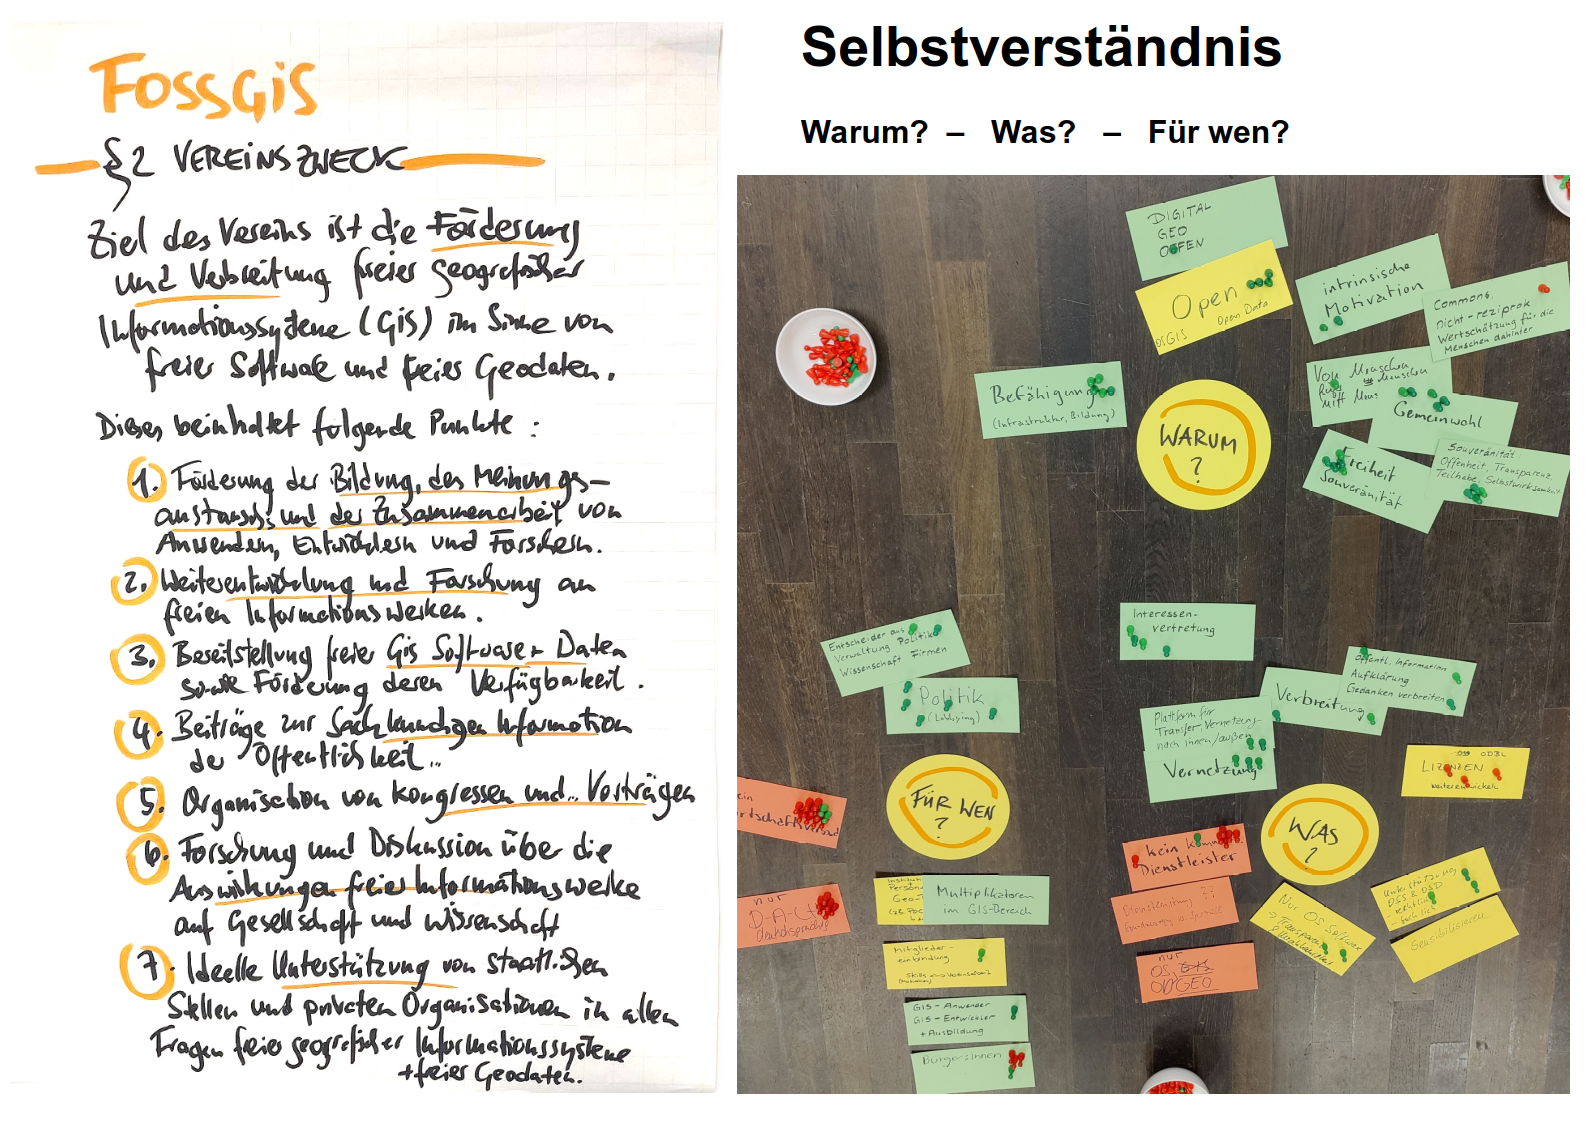 FOSSGIS
§2 VEREINSZWECK
Ziel des Vereins ist die Förderung
und Verbreitung freier geografischer
Informationssysteme (GIS) im Sinne von
freier Software und freier Geodaten.
Dieses beinhaltet folgende Punkte:
1. Förderung der Bildung, des Meinungs-
austauschs und der Zusammenarbeit von
Anwendern, Entwicklern und Forschern.
2. Weiterentwicklung und Forschung an
freien Informationswerken.
3. Bereitstellung freier GIS Software + Daten
sowie Förderung deren Verfügbarkeit.
4. Beiträge zur Sachkundigen Information
der Öffentlichkeit...
5. Organisation von Kongressen und... Vorträgen
6. Forschung und Diskussion über die
Auswirkungen freier Informationswerke
auf Gesellschaft und Wissenschaft
7. Ideelle Unterstützung von staatlichen
Stellen und privaten Organisationen in allen
Fragen freier geografischer Informationssysteme
+freier Geodaten.
Selbstverständnis
Warum? – Was? – Für wen?
DIGITAL
GEO
OFFEN
Open
OSGIS Open Data
intrinsische
Motivation
Commons,
nicht-reziprok
Wertschätzung für die
Menschen dahinter
Befähigung
(Infrastruktur, Bildung)
WARUM
?
Von Menschen
für Menschen
mit
Gemeinwohl
Freiheit
Souveränität
Souveränität
Offenheit, Transparenz,
Teilhabe, Selbstwirksamkeit
Entscheider aus Politik
Verwaltung
Wissenschaft Firmen
Politik
(Lobbying)
FÜR WEN
?
nur
D-A-CH
deutschsprachig
Multiplikatoren
im GIS-Bereich
Mitglieder-
einbindung
GIS-Anwender
GIS-Entwickler
+Ausbildung
Bürger:innen
Interessen-
vertretung
Öffentl. Information
Aufklärung
Gedanken verbreiten
Verbreitung
Plattform für
Transfer, Vernetzung
nach innen/außen
Vernetzung
ODBL
LIZENZEN
weiterentwickeln
WAS
?
kein
Dienstleister
Dienstleistung ??
nur
OS,
OD/GEO
Nur OS Software
→ Transparenz
Unterstützung
OSS & OSD
Sensibilisieren